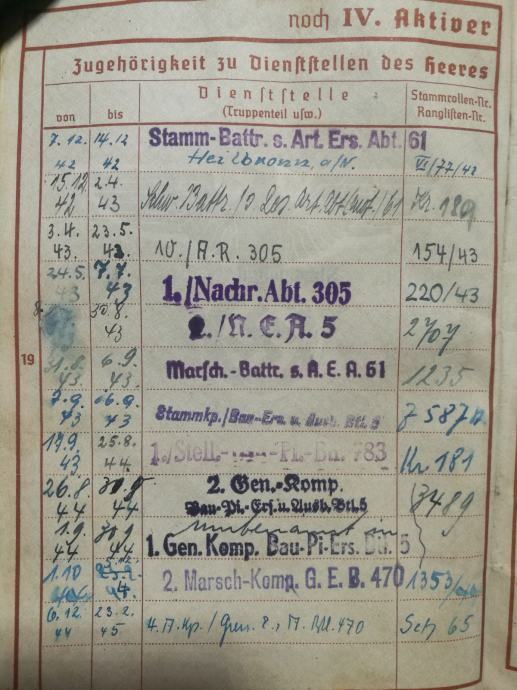 noch IV. Aktiver
Zugehörigkeit zu Dienststellen des Heeres
von bis Dienststelle (Truppenteil usw.) Stammrollen-Nr. Ranglisten-Nr.
7.12. 42 14.12 42 Stamm-Battr. s. Art. Ers. Abt. 61
Heilbronn, a/N. VI/77/42
15.12 42 2.4. 43 Battr./ Art. /61 Kr. 189
3.4. 43. 23.5. 43. 10./A.R. 305 154/43
24.5. 43 7.7. 43 1./Nachr. Abt. 305 220/43
30.8. 43 2./N.E.A. 5 2707
19
31.8. 43 6.9. 43 Marsch.-Battr. s. A.E.A. 61 1235
7.9. 43 16.9. 43 Stammkp./Bau-Ers. u. Ausb. Btl. 5
17.9. 43 25.8. 44 1./Stell.- Pi.-Btl. 783 Kr 181
26.8. 44 30.9 44 2. Gen.-Komp.
Bau-Pi.-Ers. u. Ausb. Btl. 5 3489
umbenannt in
1.9. 44 30.9 44 1. Gen. Komp. Bau-Pi-Ers. Btl. 5
1.10 2. Marsch-Komp. G.E.B. 470 1353/
6.12. 44 23.2. 45 4. M. Kp./ Gren. Btl. 470 65